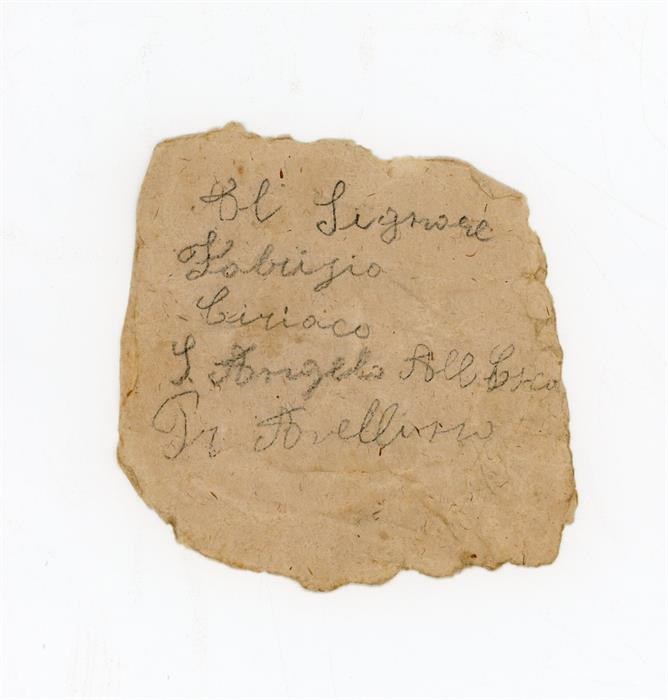 Al Signore
Fabrizio
Ciriaco
S Angelo All Esca
Pr Avellino